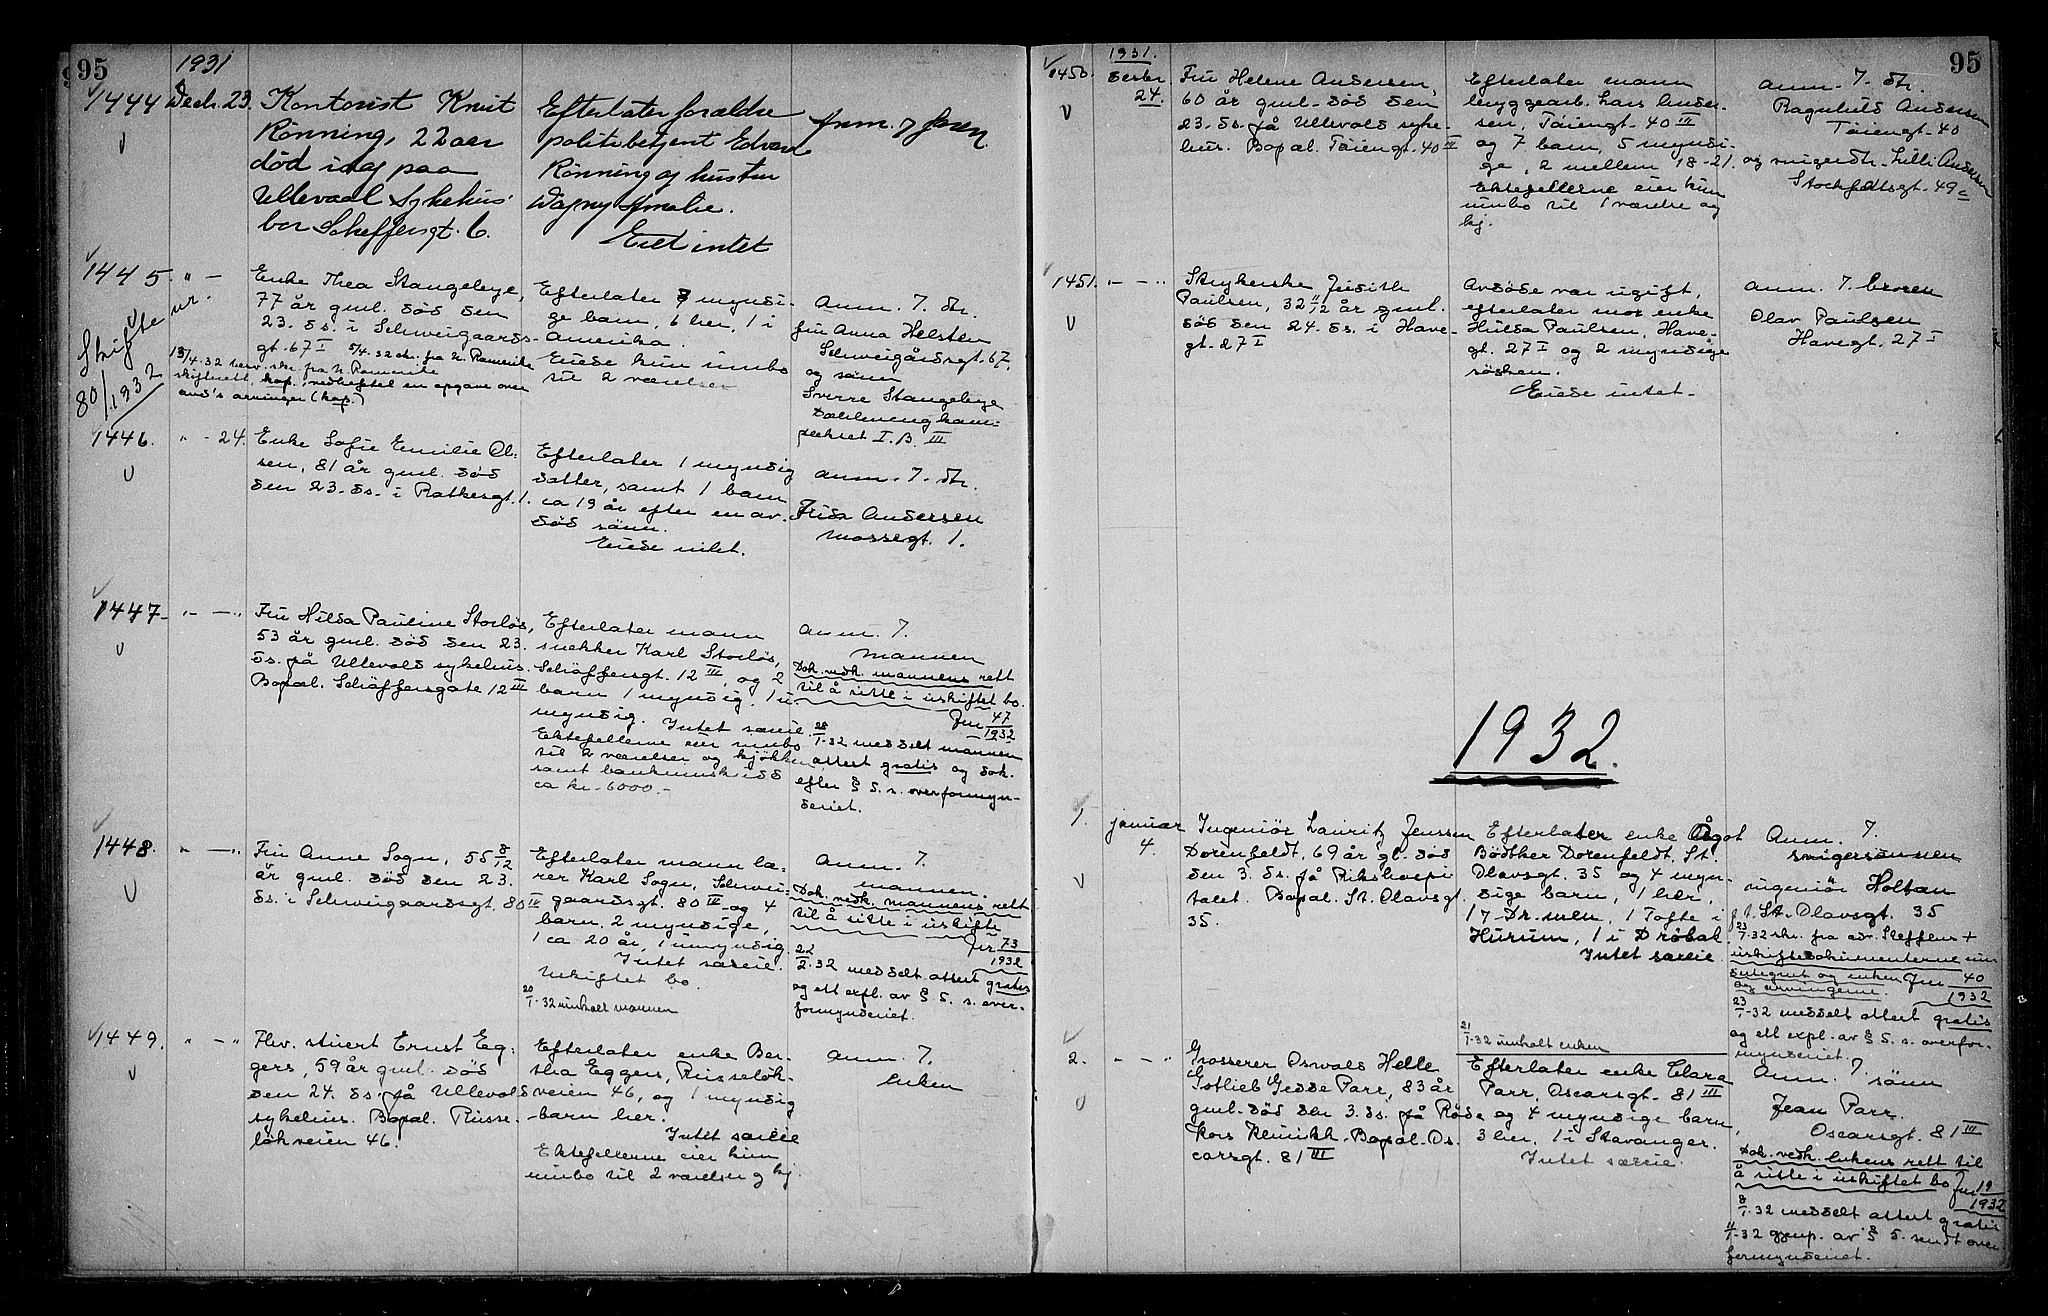 95
1931
1444 Decbr. 23. Kontorist Knut
Rønning, 22 aar
død idag paa
Ullevaal Sykehus
bor Scheffersgt. 6.
Efterlater forældre
politibetjent Edvard
Rønning og hustru
Dagny Amalie.
Eiet intet
Anm. 7
1445. " — Enke Thea Stangebye,
77 år gml. død den
23. ds. i Schweigaards-
gt. 67 I 5/4.32 skr. fra N. Romerike
13/4.32 skr. fra N. Romerike
skifterett, kap. vedheftet en opgave over
avd's arvinger (kap.)
Skifte nr.
80/1932
Efterlater 7 myndi-
ge barn, 6 her, 1 i
Amerika.
Eiede kun innbo
til 2 værelser
Anm. 7. dtr.
fru Anna Helsten
Schweigårdsgt. 67.
og sønn
Sverre Stangebye
I. B. III
1446. " - 24. Enke Sofie Emilie Ol-
sen, 81 år gml. død
den 23. ds. i Rathkesgt. 1.
Efterlater 1 myndig
datter, samt 1 barn
ca 19 år efter en av-
død sønn.
Eiede intet.
Anm. 7. dtr.
Frida Andersen
Mossegt. 1.
1447. " — " Fru Hilda Pauline Storløs,
53 år gml. død den 23.
ds. på Ullevold sykehus.
Bopæl. Schøffersgate 12 III
Efterlater mann
snekker Karl Storløs,
Schøffersgt. 12 III, og 2
barn 1 myndig, 1 u-
myndig. Intet særeie.
Ektefellerne eier innbo
til 2 værelser og kjøkken
samt bankinnskudd
ca kr. 6000.-
Anm. 7.
mannen
Dok. vedk. mannens rett
til å sitte i uskiftet bo.
Jnr 47/1932
28/1-32 meddelt mannen
attest gratis og dok.
efter § 5. s. overformyn-
deriet.
1448. " — " Fru Anne Sogn, 55 8/12
år gml. død den 23.
ds. i Schweigaardsgt. 80 IV
Efterlater mann læ-
rer Karl Sogn, Schwei-
gaardsgt. 80 IV og 4
barn, 2 myndige,
1 ca 20 år, 1 umyndig.
Intet særeie.
Uskiftet bo.
20/1-32 innkalt mannen
Anm. 7.
mannen.
Dok. vedk. mannens rett
til å sitte i uskifte
Jnr 73/1932
22/2.32 meddelt attest gratis
og ett expl. av § 5. s. over-
formynderiet.
1449. " — " Fhv. stuert Ernst Eg-
gers, 59 år gml. død
den 24. ds. på Ullevold
sykehus. Bopæl. Russe-
løkveien 46.
Efterlater enke Ber-
tha Eggers, Russeløk-
veien 46, og 1 myndig
barn her.
Intet særeie
Ektefellerne eier kun
innbo til 2 værelser og kj.
Anm. 7.
enken
95
1931.
1450. Decbr. 24. Fru Helene Andersen,
60 år gml. død den
23. ds. på Ullevold syke-
hus. Bopæl. Tøiengt. 40 III
Efterlater mann
byggearb. Lars Ander-
sen, Tøiengt. 40 III
og 7 barn, 5 myndi-
ge, 2 mellem 18-21.
Ektefellerne eier kun
innbo til 1 værelse og
kj.
Anm. 7. dtr.
Ragnhild Andersen
Tøiengt. 40
og svigerdtr. Lilli Andersen
Stockfletsgt. 49 c
1451. " — " Strykerske Judith
Paulsen, 32 11/12 år gml.
død den 24. ds. i Have-
gt. 27 I
Avdøde var ugift,
efterlater mor enke
Hulda Paulsen, Have-
gt. 27 I og 2 myndige
søsken.
Eiede intet.
Anm. 7. broren
Olav Paulsen
Havegt. 27 I
1932.
1. Januar 4. Ingeniør Lauritz Jenssen
Dorenfeldt, 69 år gl. død
den 3. ds. på Rikshospi
talet. Bopæl. St. Olavsgt.
35.
Efterlater enke Ågot
Bödtker Dorenfeldt, St.
Olavsgt. 35 og 4 myn-
dige barn, 1 her,
1 i Dr.men, 1 Tofte i
Hurum, 1 i Drøbak
Intet særeie
21/1-32 innkalt enken
Anm. 7.
svigersønnen
ingeniør Holtan
St. Olavsgt. 35
23/1-32 skr. fra adv. Steffens +
uskiftedokumenterne un
dertegnet og enken Jnr 40/1932
og arvingerne.
23/1-32 meddelt attest gratis
og ett expl. av § 5. s. overfor-
mynderiet.
2. " — " Grosserer Oswald Helle
Gotlieb Gedde Parr, 83 år
gml. død den 3. ds. på Røde
Kors Klinikk. Bopæl. Os-
carsgt. 81 III
Efterlater enke Clara
Parr, Oscarsgt. 81 III
og 4 myndige barn,
3 her, 1 i Stavanger.
Intet særeie.
Anm. 7 sønn
Jean Parr.
Oscarsgt. 81 III
Dok. vedk. enkens rett til
å sitte i uskiftet bo Jnr 19/1932
8/1.32 meddelt attest gratis
11/1-32 gjenp. av § 5. sendt over-
formynderiet.